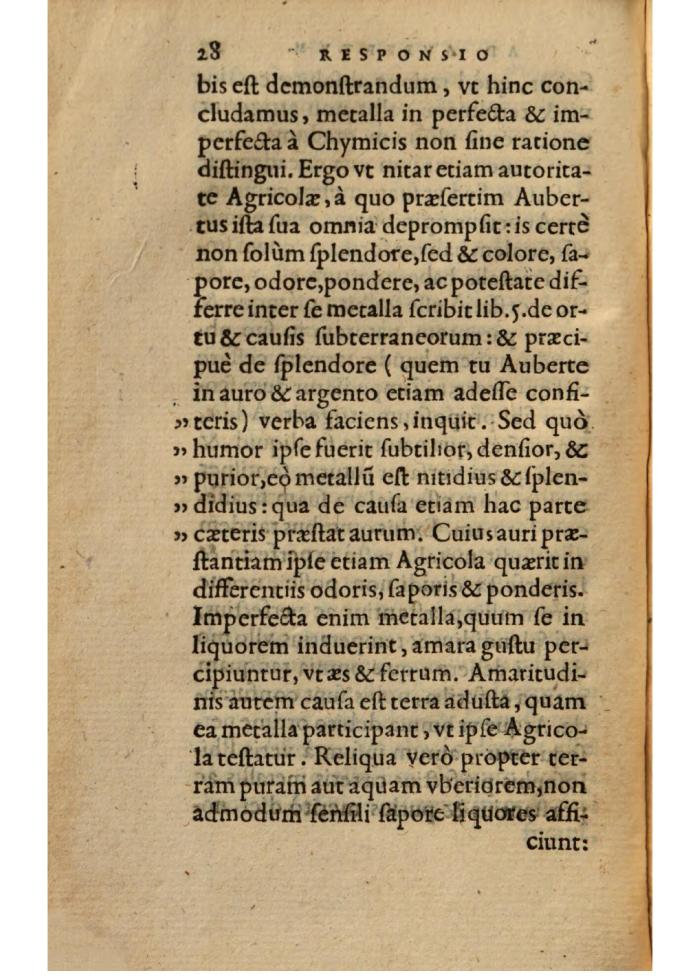 28 RESPONSIO
bis eſt demonſtrandum, vt hinc con-
cludamus, metalla in perfecta & im-
perfecta à Chymicis non ſine ratione
diſtingui. Ergo vt nitar etiam autorita-
te Agricolæ, à quo præſertim Auber-
tus iſta ſua omnia deprompſit: is certè
non ſolùm ſplendore, ſed & colore, ſa-
pore, odore, pondere, ac poteſtate dif-
ferre inter ſe metalla ſcribit lib. 5. de or-
tu & cauſis ſubterraneorum: & præci-
puè de ſplendore ( quem tu Auberte
in auro & argento etiam adeſſe confi-
„ teris) verba faciens, inquit. Sed quò
„ humor ipſe fuerit ſubtilior, denſior, &
„ purior, eò metallũ eſt nitidius & ſplen-
„ didius: qua de cauſa etiam hac parte
„ cæteris præſtat aurum. Cuius auri præ-
ſtantiam ipſe etiam Agricola quærit in
differentiis odoris, ſaporis & ponderis.
Imperfecta enim metalla, quum ſe in
liquorem induerint, amara guſtu per-
cipiuntur, vt æs & ferrum. Amaritudi-
nis autem cauſa eſt terra aduſta, quam
ea metalla participant, vt ipſe Agrico-
la teſtatur. Reliqua verò propter ter-
ram puram aut aquam vberiorem, non
admodum ſenſili ſapore liquores affi-
ciunt: